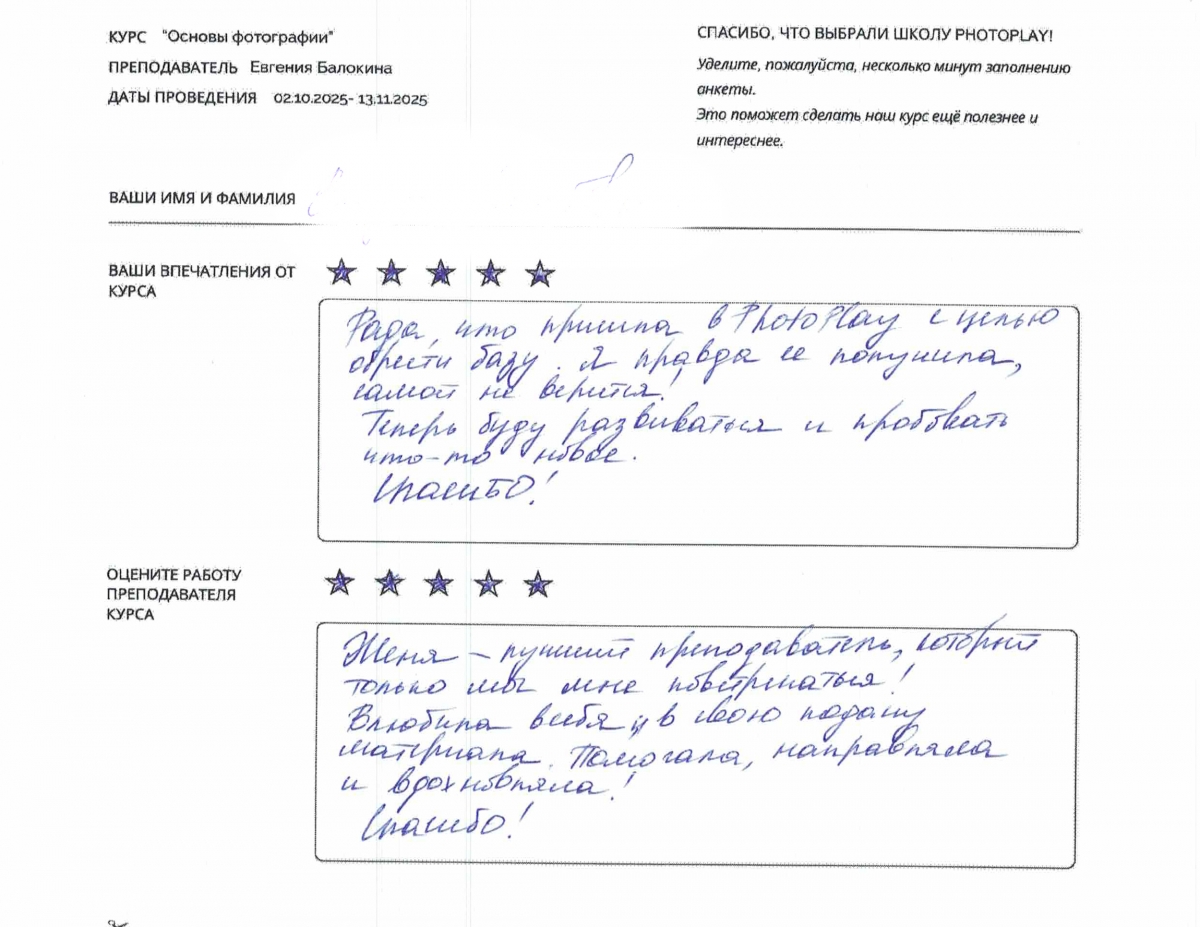 КУРС "Основы фотографии"
ПРЕПОДАВАТЕЛЬ Евгения Балокина
ДАТЫ ПРОВЕДЕНИЯ 02.10.2025- 13.11.2025
СПАСИБО, ЧТО ВЫБРАЛИ ШКОЛУ PHOTOPLAY!
Уделите, пожалуйста, несколько минут заполнению
анкеты.
Это поможет сделать наш курс ещё полезнее и
интереснее.
ВАШИ ИМЯ И ФАМИЛИЯ
ВАШИ ВПЕЧАТЛЕНИЯ ОТ
КУРСА
Рада, что пришла в PhotoPlay с целью
обрести базу. Я правда ее получила,
самой не верится!
Теперь буду развиваться и пробовать
что-то новое.
Спасибо!
ОЦЕНИТЕ РАБОТУ
ПРЕПОДАВАТЕЛЯ
КУРСА
Женя – лучший преподаватель, который
только мог мне повстречаться!
Влюбила в себя и в свою подачу
материала. Помогала, направляла
и вдохновляла!
Спасибо!